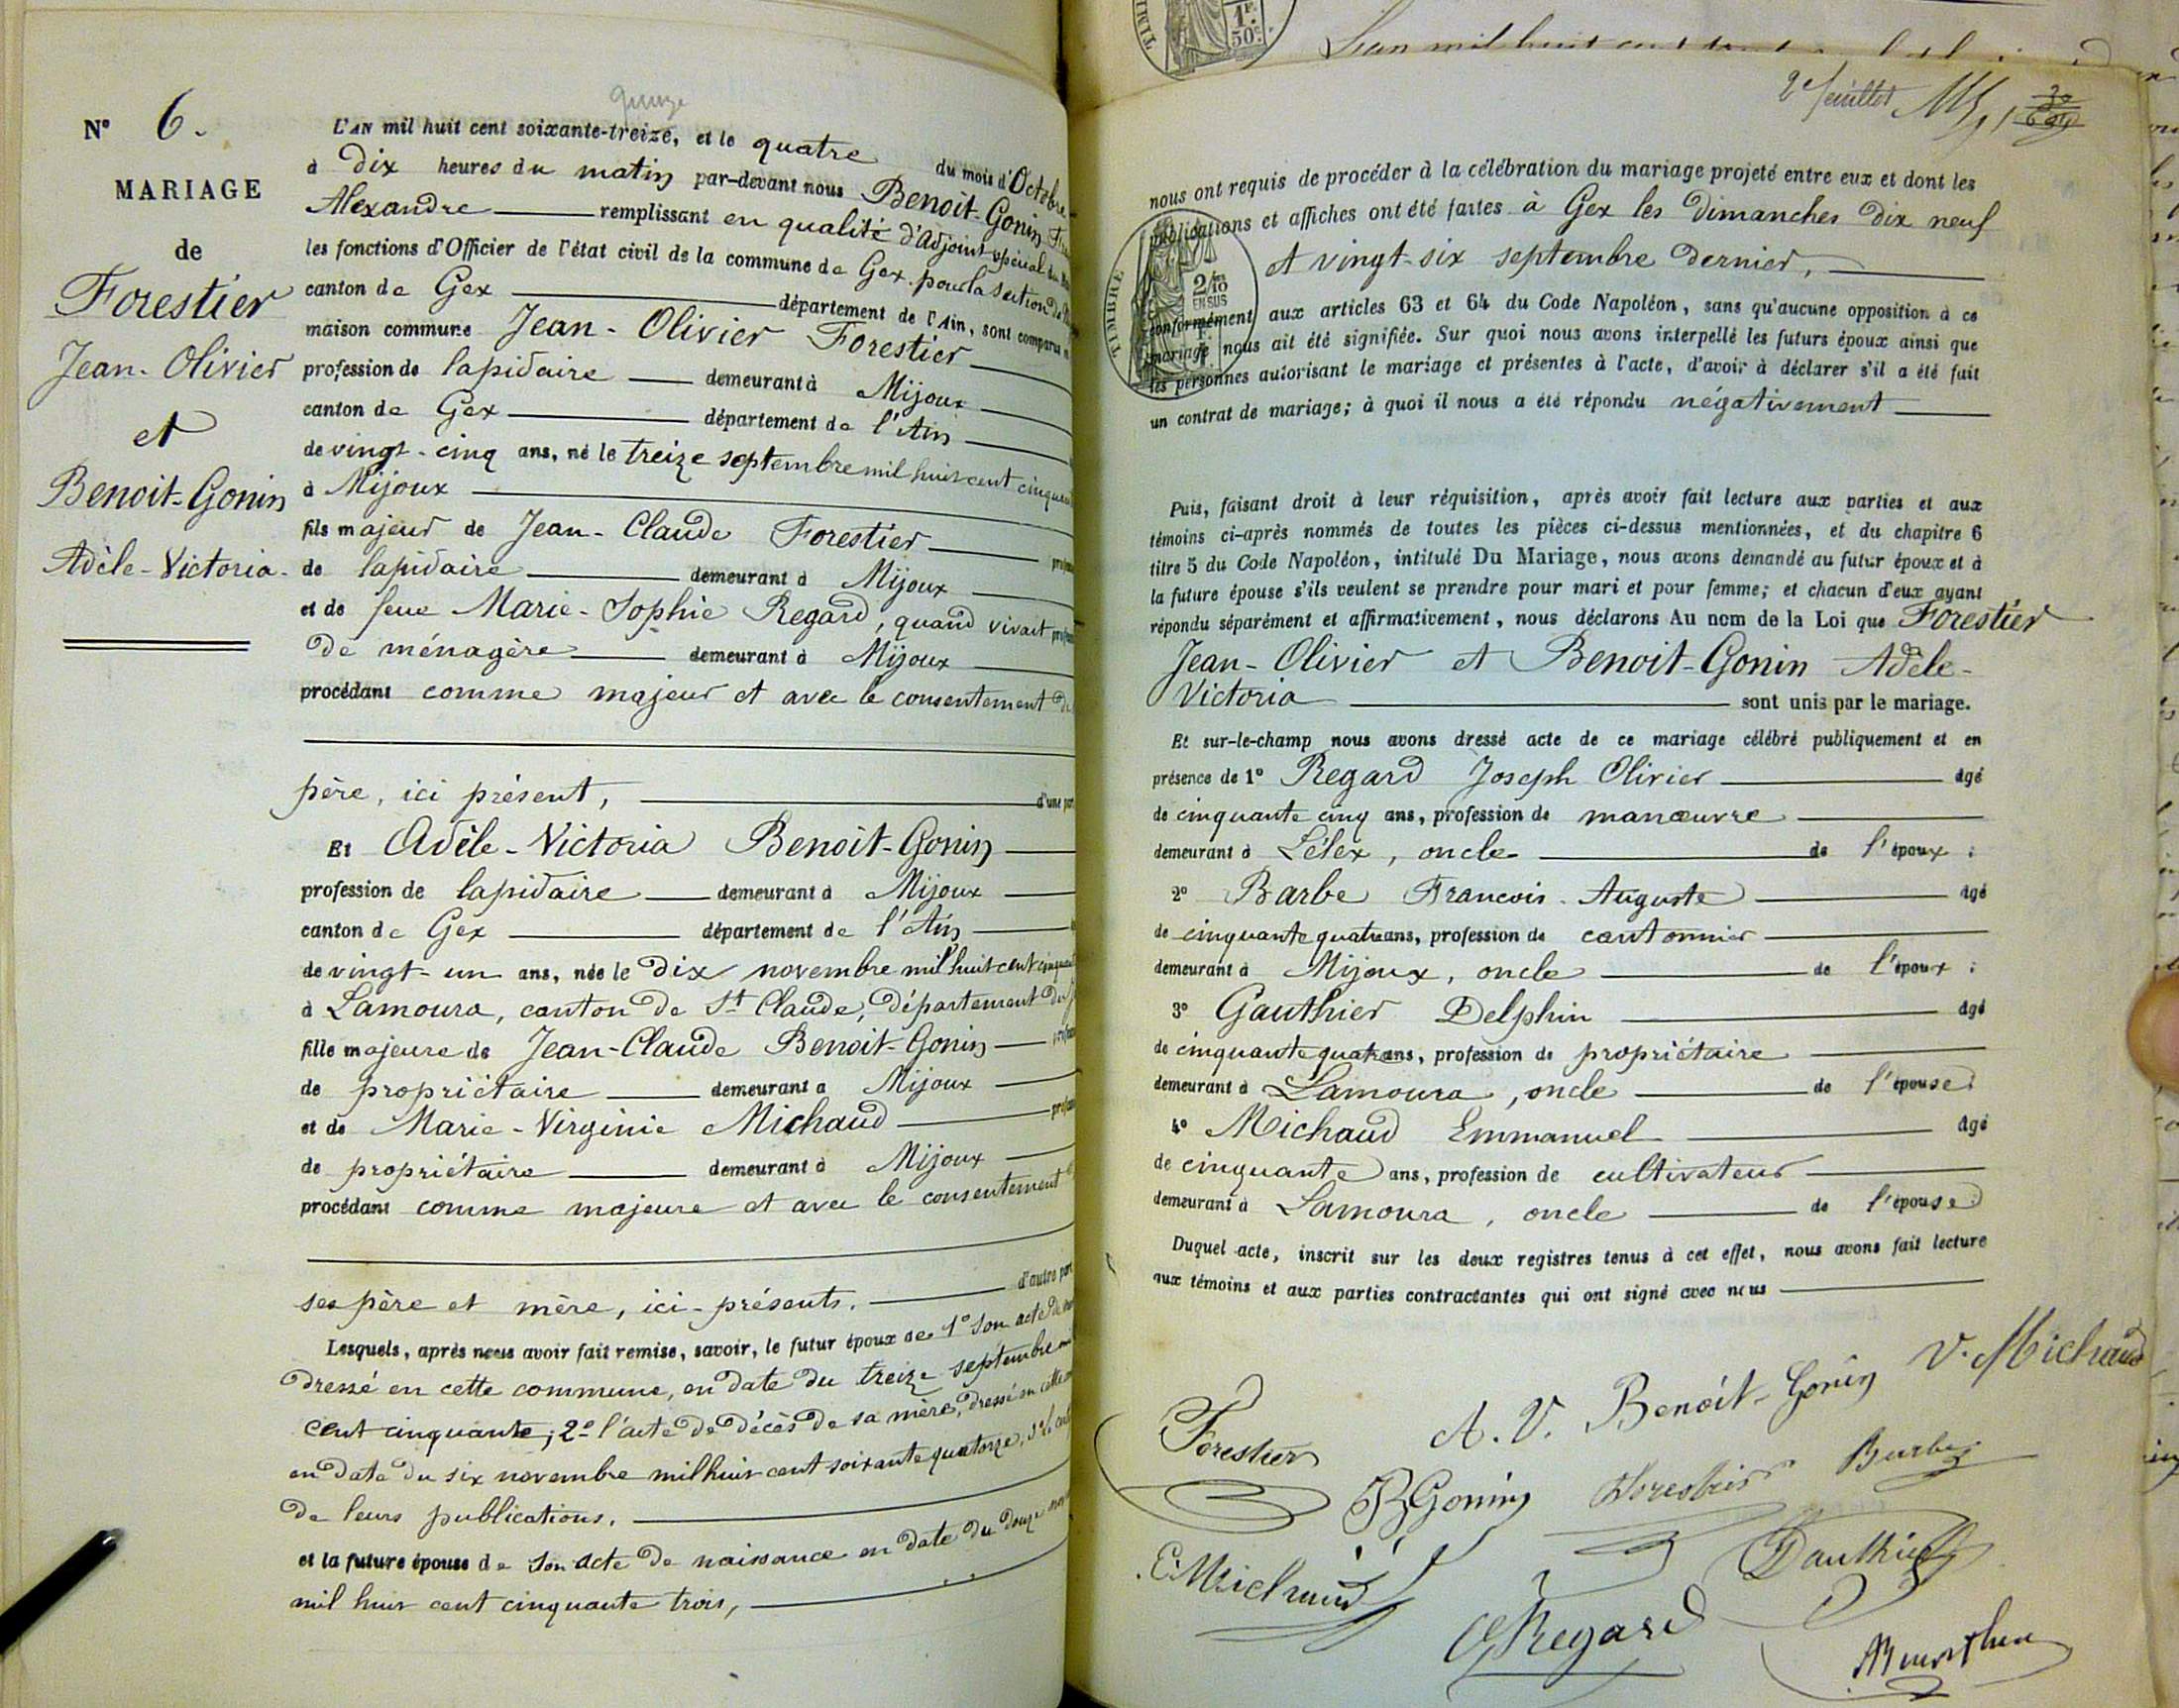 N° 6.
MARIAGE
de
Forestier
Jean-Olivier
et
Benoit-Gonin
Adèle-Victoria.
quinze
L'AN mil huit cent soixante-treize, et le quatre du mois d'Octobre
à dix heures du matin par-devant nous Benoit-Gonin
Alexandre remplissant en qualité d'Adjoint spécial
les fonctions d'Officier de l'état civil de la commune de Gex pour la section de
canton de Gex département de l'Ain, sont comparus
maison commune Jean-Olivier Forestier
profession de lapidaire demeurant à Mijoux
canton de Gex département de l'Ain
de vingt-cinq ans, né le treize septembre mil huit cent
à Mijoux
fils majeur de Jean-Claude Forestier
de lapidaire demeurant à Mijoux
et de feue Marie-Sophie Regard, quand vivait
de ménagère demeurant à Mijoux
procédant comme majeur et avec le consentement
père, ici présent, d'une
Et Adèle-Victoria Benoit-Gonin
profession de lapidaire demeurant à Mijoux
canton de Gex département de l'Ain
de vingt-un ans, née le dix novembre mil huit cent
à Lamoura, canton de St Claude, département du
fille majeure de Jean-Claude Benoit-Gonin
de propriétaire demeurant a Mijoux
et de Marie-Virginie Michaud
de propriétaire demeurant à Mijoux
procédant comme majeure et avec le consentement
ses père et mère, ici-présents. d'autre
Lesquels, après nous avoir fait remise, savoir, le futur époux de 1° son acte de
dressé en cette commune, en date du treize septembre
cent cinquante; 2° l'acte de décès de sa mère, dressé en cette
en date du six novembre mil huit cent soixante quatorze, 3°
de leurs publications.
et la future épouse de son acte de naissance en date du douze
mil huit cent cinquante trois,
1F. 50c.
2e feuillet
nous ont requis de procéder à la célébration du mariage projeté entre eux et dont les
publications et affiches ont été faites à Gex les dimanches dix neuf
et vingt-six septembre dernier,
TIMBRE 2/10 EN SUS
conformément aux articles 63 et 64 du Code Napoléon, sans qu'aucune opposition à ce
mariage nous ait été signifiée. Sur quoi nous avons interpellé les futurs époux ainsi que
les personnes autorisant le mariage et présentes à l'acte, d'avoir à déclarer s'il a été fait
un contrat de mariage; à quoi il nous a été répondu négativement
Puis, faisant droit à leur réquisition, après avoir fait lecture aux parties et aux
témoins ci-après nommés de toutes les pièces ci-dessus mentionnées, et du chapitre 6
titre 5 du Code Napoléon, intitulé Du Mariage, nous avons demandé au futur époux et à
la future épouse s'ils veulent se prendre pour mari et pour femme; et chacun d'eux ayant
répondu séparément et affirmativement, nous déclarons Au nom de la Loi que Forestier
Jean-Olivier et Benoit-Gonin Adèle-
Victoria sont unis par le mariage.
Et sur-le-champ nous avons dressé acte de ce mariage célébré publiquement et en
présence de 1° Regard Joseph Olivier âgé
de cinquante cinq ans, profession de manœuvre
demeurant à Lélex, oncle de l'époux;
2° Barbe Francois-Auguste âgé
de cinquante quatre ans, profession de cantonnier
demeurant à Mijoux, oncle de l'époux;
3° Gauthier Delphin âgé
de cinquante quatre ans, profession de propriétaire
demeurant à Lamoura, oncle de l'épouse;
4° Michaud Emmanuel âgé
de cinquante ans, profession de cultivateur
demeurant à Lamoura, oncle de l'épouse
Duquel acte, inscrit sur les deux registres tenus à cet effet, nous avons fait lecture
aux témoins et aux parties contractantes qui ont signé avec nous
V. Michaud
A. V. Benoît-Gonin
Forestier
BGonin Forestier Barbe
E. Michaud Gauthier
Regard